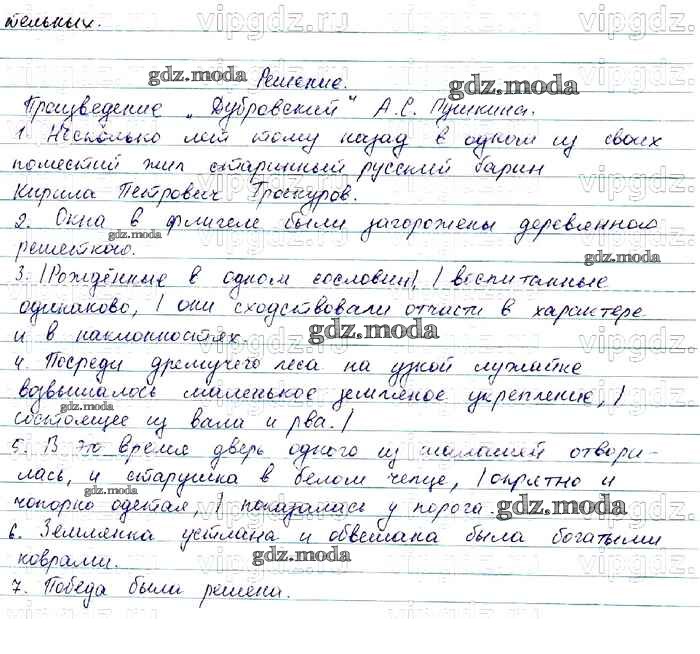 тельных.
Решение.
Произведение „Дубровский" А.С. Пушкина.
1. Несколько лет тому назад в одном из своих
поместий жил старинный русский барин
Кирила Петрович Троекуров.
2. Окна в флигеле были загорожены деревянною
решеткою.
3. |Рождённые в одном сословии,| |воспитанные
одинаково,| они сходствовали отчасти в характере
и в наклонностях.
4. Посреди дремучего леса на узкой лужайке
возвышалось маленькое земляное укрепление, |
состоящее из вала и рва.|
5. В это время дверь одного из шалашей отвори-
лась, и старушка в белом чепце, |опрятно и
чопорно одетая,| показалась у порога.
6. Землянка устлана и обвешана была богатыми
коврами.
7. Победа была решена.
gdz.moda
gdz.moda
gdz.moda
gdz.moda
gdz.moda
gdz.moda
gdz.moda
gdz.moda
gdz.moda
vipgdz.ru